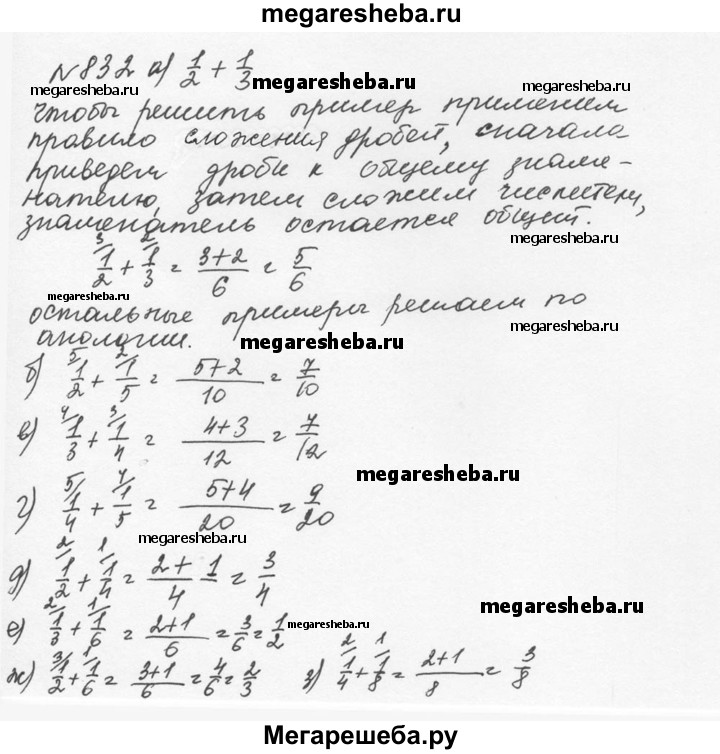 megaresheba.ru
№832 а) 1/2 + 1/3
megaresheba.ru megaresheba.ru
чтобы решить пример применем
правило сложения дробей, сначала
megaresheba.ru
приведем дроби к общему знаме-
нателю, затем сложим числители,
знаменатель остается общий.
megaresheba.ru
3/ 1/2 + 2/ 1/3 = 3+2/6 = 5/6
megaresheba.ru
остальные примеры решаем по
megaresheba.ru
анологии.
megaresheba.ru
б) 5/ 1/2 + 2/ 1/5 = 5+2/10 = 7/10
в) 4/ 1/3 + 3/ 1/4 = 4+3/12 = 7/12
megaresheba.ru
г) 5/ 1/4 + 4/ 1/5 = 5+4/20 = 9/20
megaresheba.ru
д) 2/ 1/2 + 1/ 1/4 = 2+1/4 = 3/4
megaresheba.ru
е) 2/ 1/3 + 1/ 1/6 = 2+1/6 = 3/6 = 1/2
megaresheba.ru
ж) 3/ 1/2 + 1/ 1/6 = 3+1/6 = 4/6 = 2/3 з) 2/ 1/4 + 1/ 1/8 = 2+1/8 = 3/8
Мегарешеба.ру